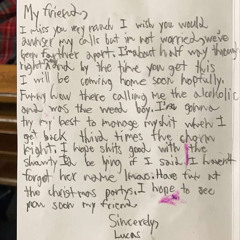 My friend,
I miss you very much I wish you would
answer my calls but im not worried, we've
been farther apart. I'm about half way through
right and by the time you get this
I will be coming home soon hopfully.
Funny how there calling me the alcoholic
and was the weed boy. I'm gonna
try my best to manage myshit when I
get back third times the charm
right. I hope shits good with the
shawty I'd be lying if I said I havent
forgot her name lmao. Have fun at
the christmas partys. I hope to see
you soon my friend
Sincerely,
Lucas